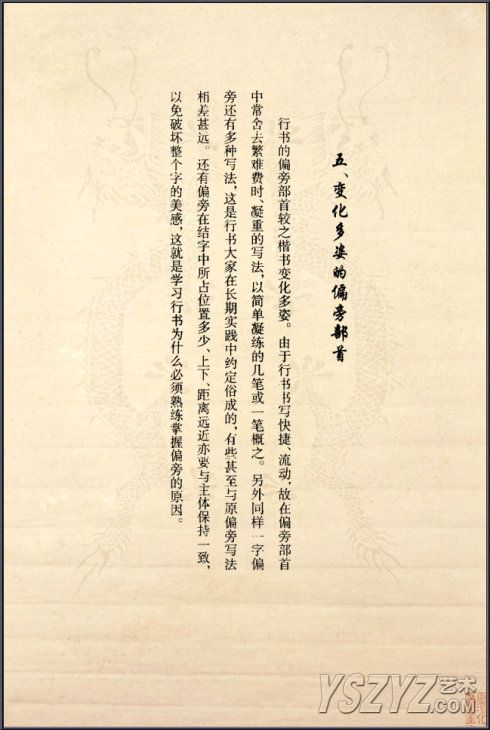 五、变化多姿的偏旁部首
行书的偏旁部首较之楷书变化多姿。由于行书书写快捷、流动,故在偏旁部首
中常舍去繁难费时、凝重的写法,以简单凝练的几笔或一笔概之。另外同样一字偏
旁还有多种写法,这是行书大家在长期实践中约定俗成的,有些甚至与原偏旁写法
相差甚远。还有偏旁在结字中所占位置多少、上下、距离远近亦要与主体保持一致,
以免破坏整个字的美感,这就是学习行书为什么必须熟练掌握偏旁的原因。
YSZYZ艺术
.COM